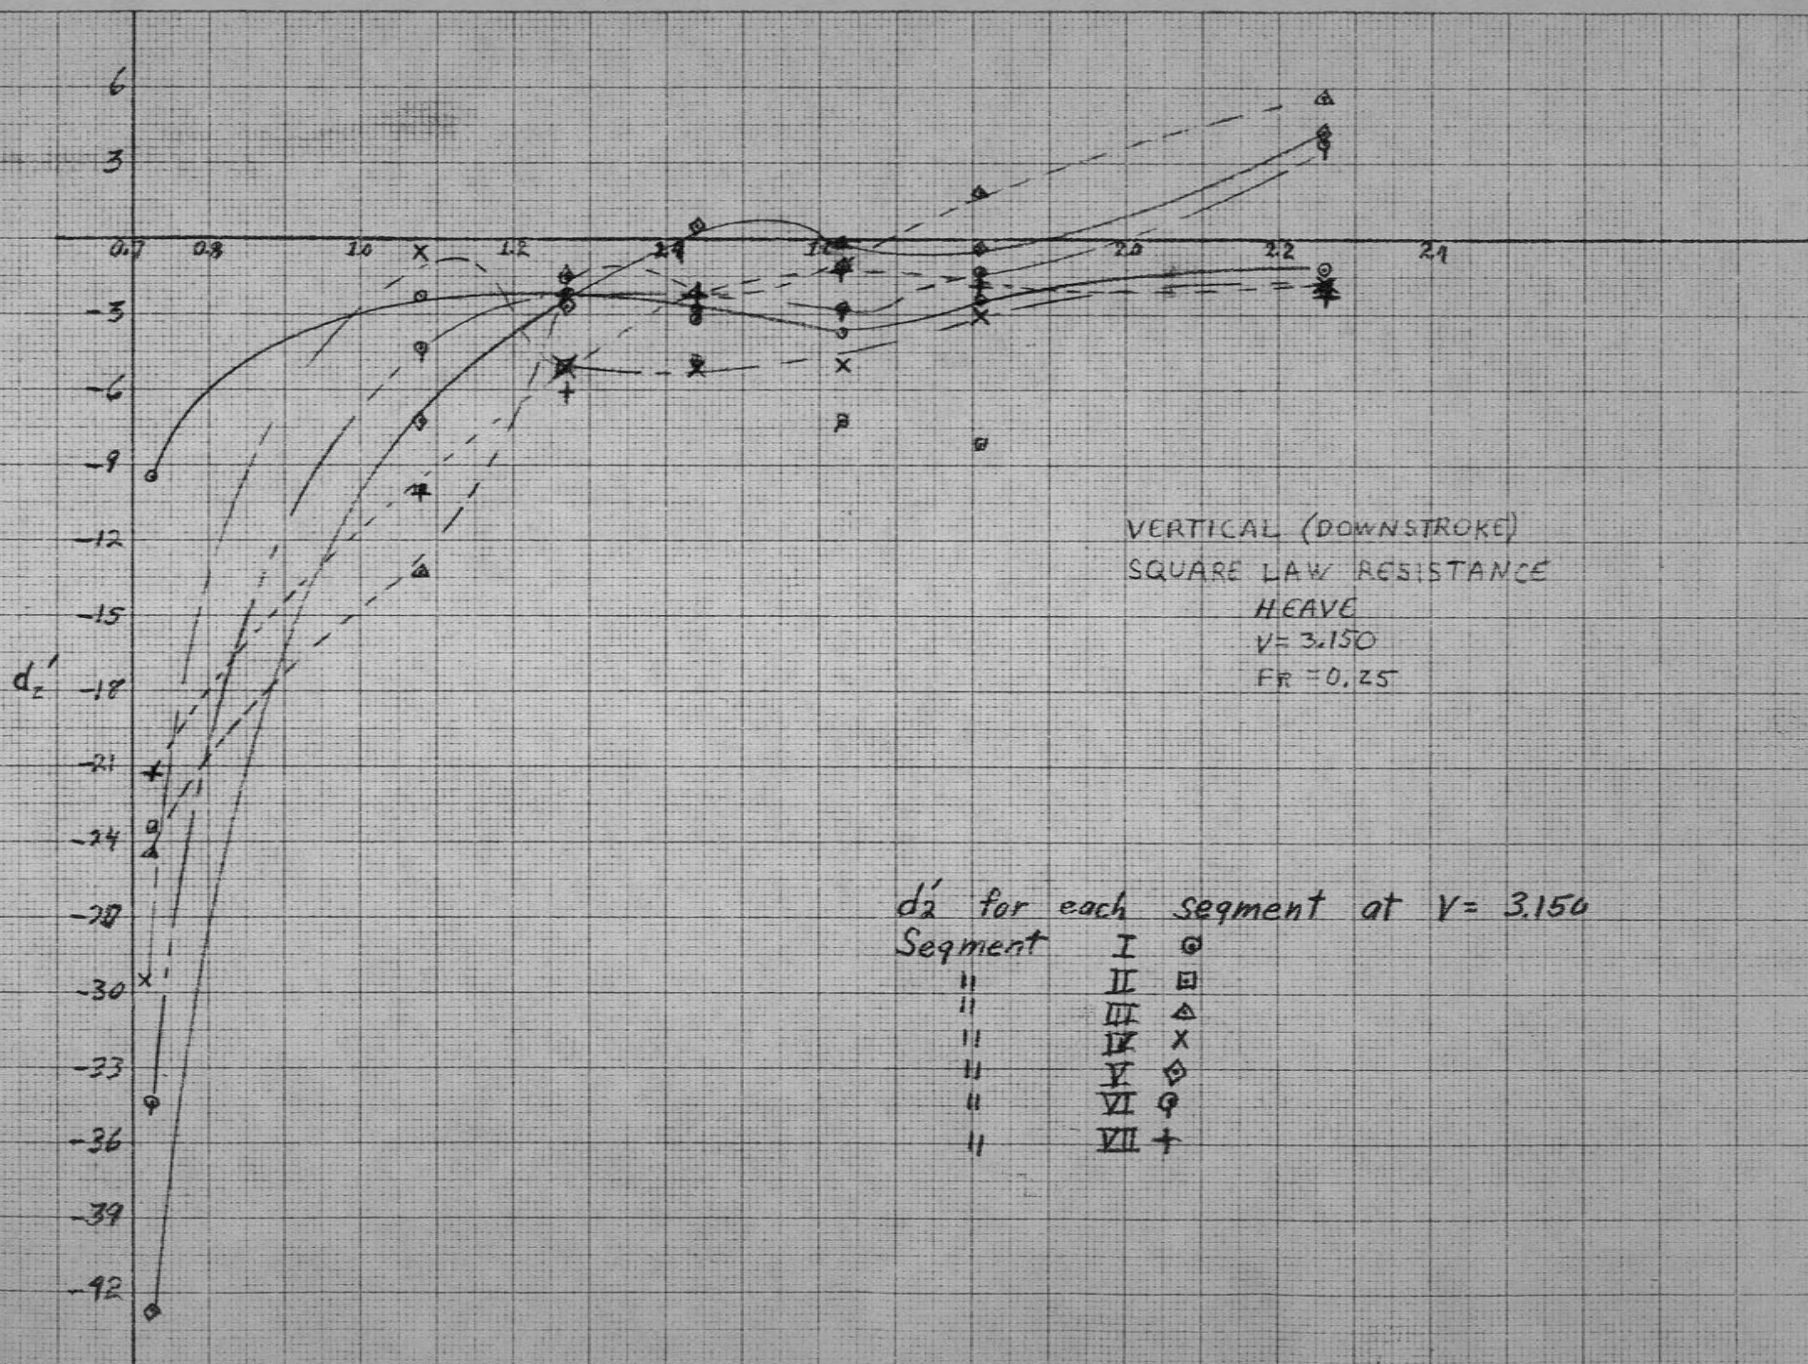 6
3
0.7 0.8 1.0 1.2 1.4 1.6 2.0 2.2 2.4
-3
-6
-9
-12
-15
d₂′ -18
-21
-24
-27
-30
-33
-36
-39
-42
VERTICAL (DOWNSTROKE)
SQUARE LAW RESISTANCE
HEAVE
V=3.150
FR=0.25
d₂′ for each segment at V= 3.150
Segment I
" II
" III
" IV
" V
" VI
" VII